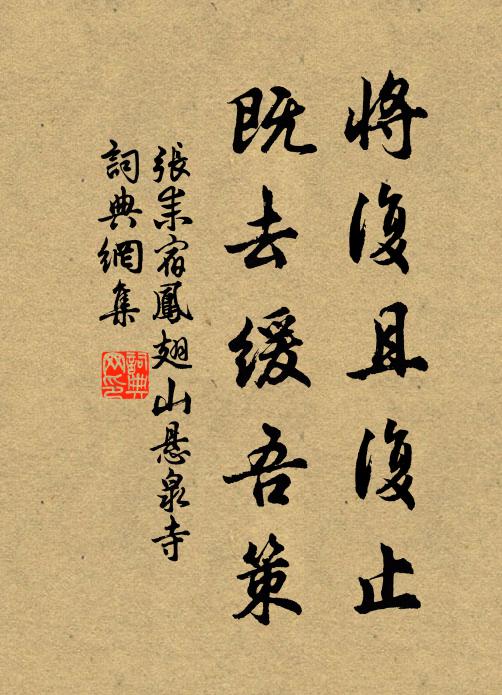 將復且復止
既去緩吾策
張耒宿鳳翅山悬泉寺
詞典網集
詞典网印